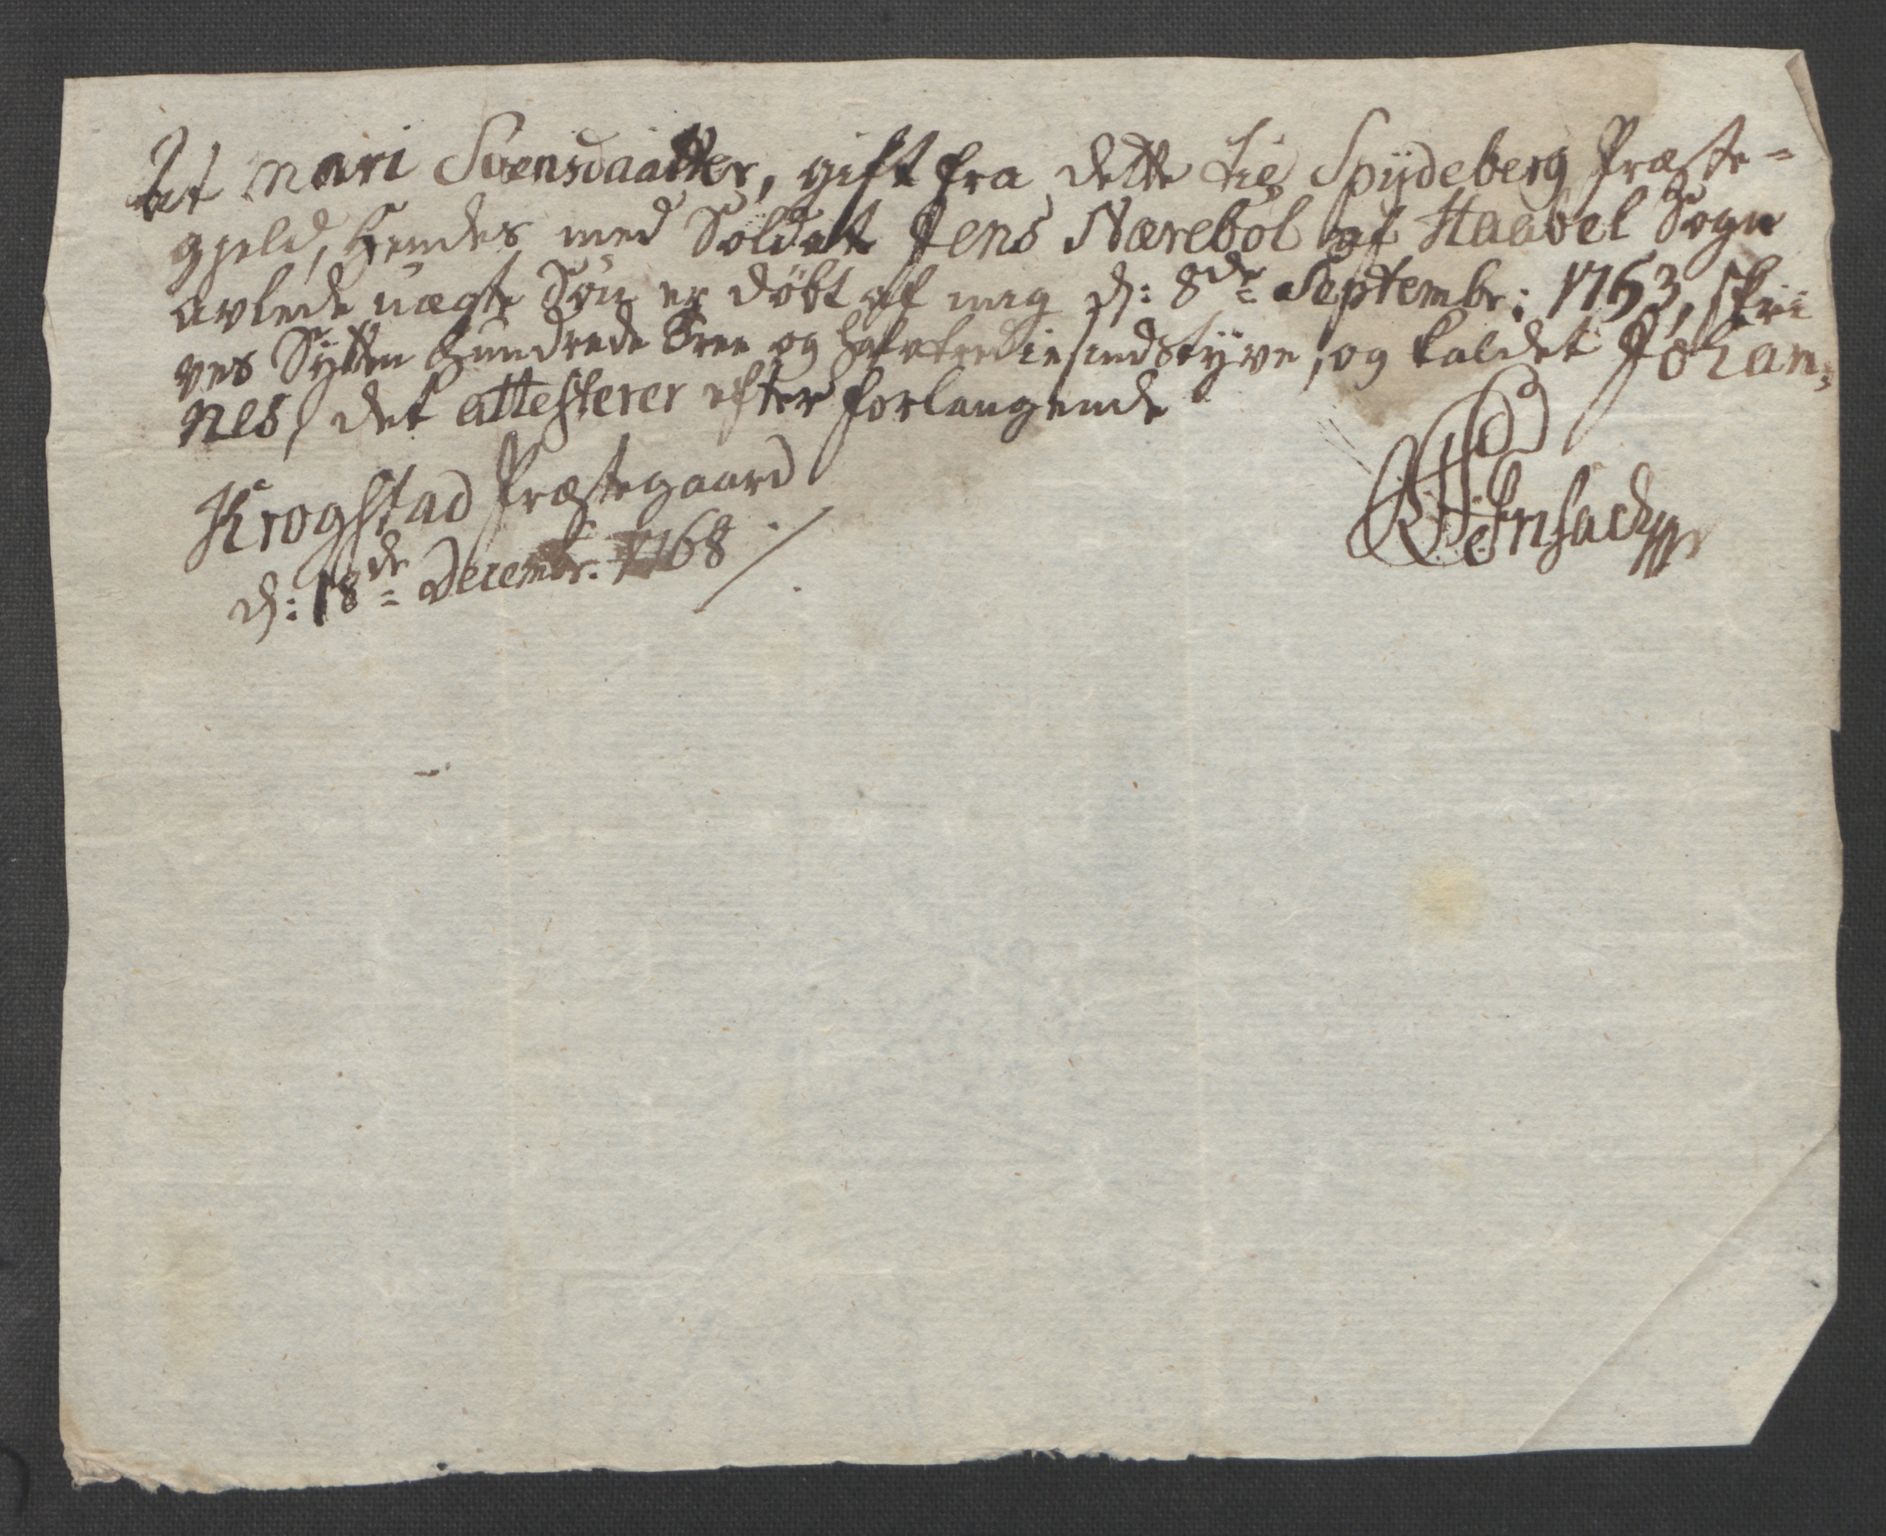 At Mari Svensdaatter, gift fra dette til Spydeberg Præste-
gjeld, hendes med Soldat Jens Nærebøl af Haabøl Sogn
avlede uægte Søn er døbt af mig d: 8de Septembr: 1763, skri
ves Sytten hundrede Tree og halvtrediesindstyve, og kaldet Johan,
nes, det attesterer efter forlangende
Krogstad Præstegaard
d: 18de Decembr. 1768